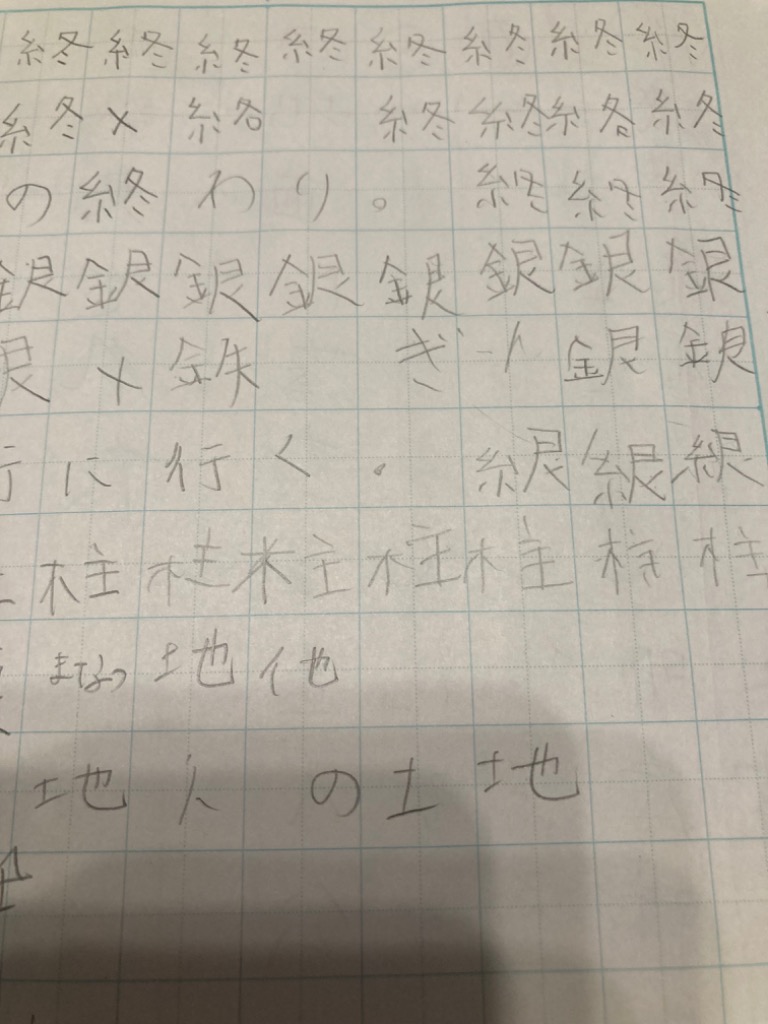 終終終終終終終終
終×絡 終終絡終
の終わり。終終終
銀銀銀銀銀銀銀銀
×鉄 ぎん銀銀
行に行く。銀銀銀
柱柱柱柱柱柱柱
地他
地人の土地